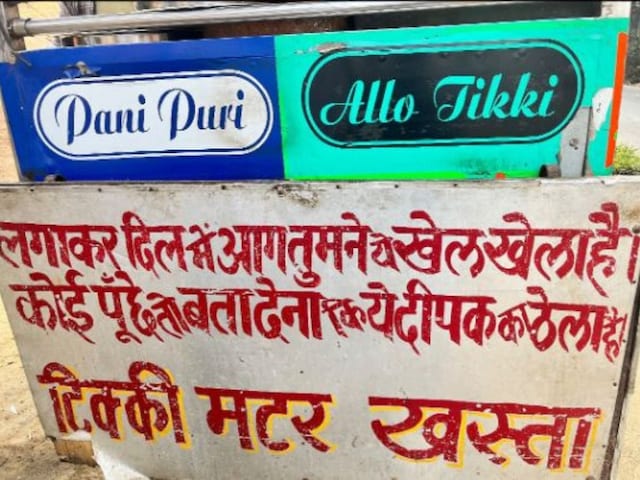 Pani Puri
Allo Tikki
लगाकर दिल में आग तुमने ये खेल खेला है।
कोई पूँछे तो बता देना कि ये दीपक का ठेला है।
टिक्की मटर खस्ता